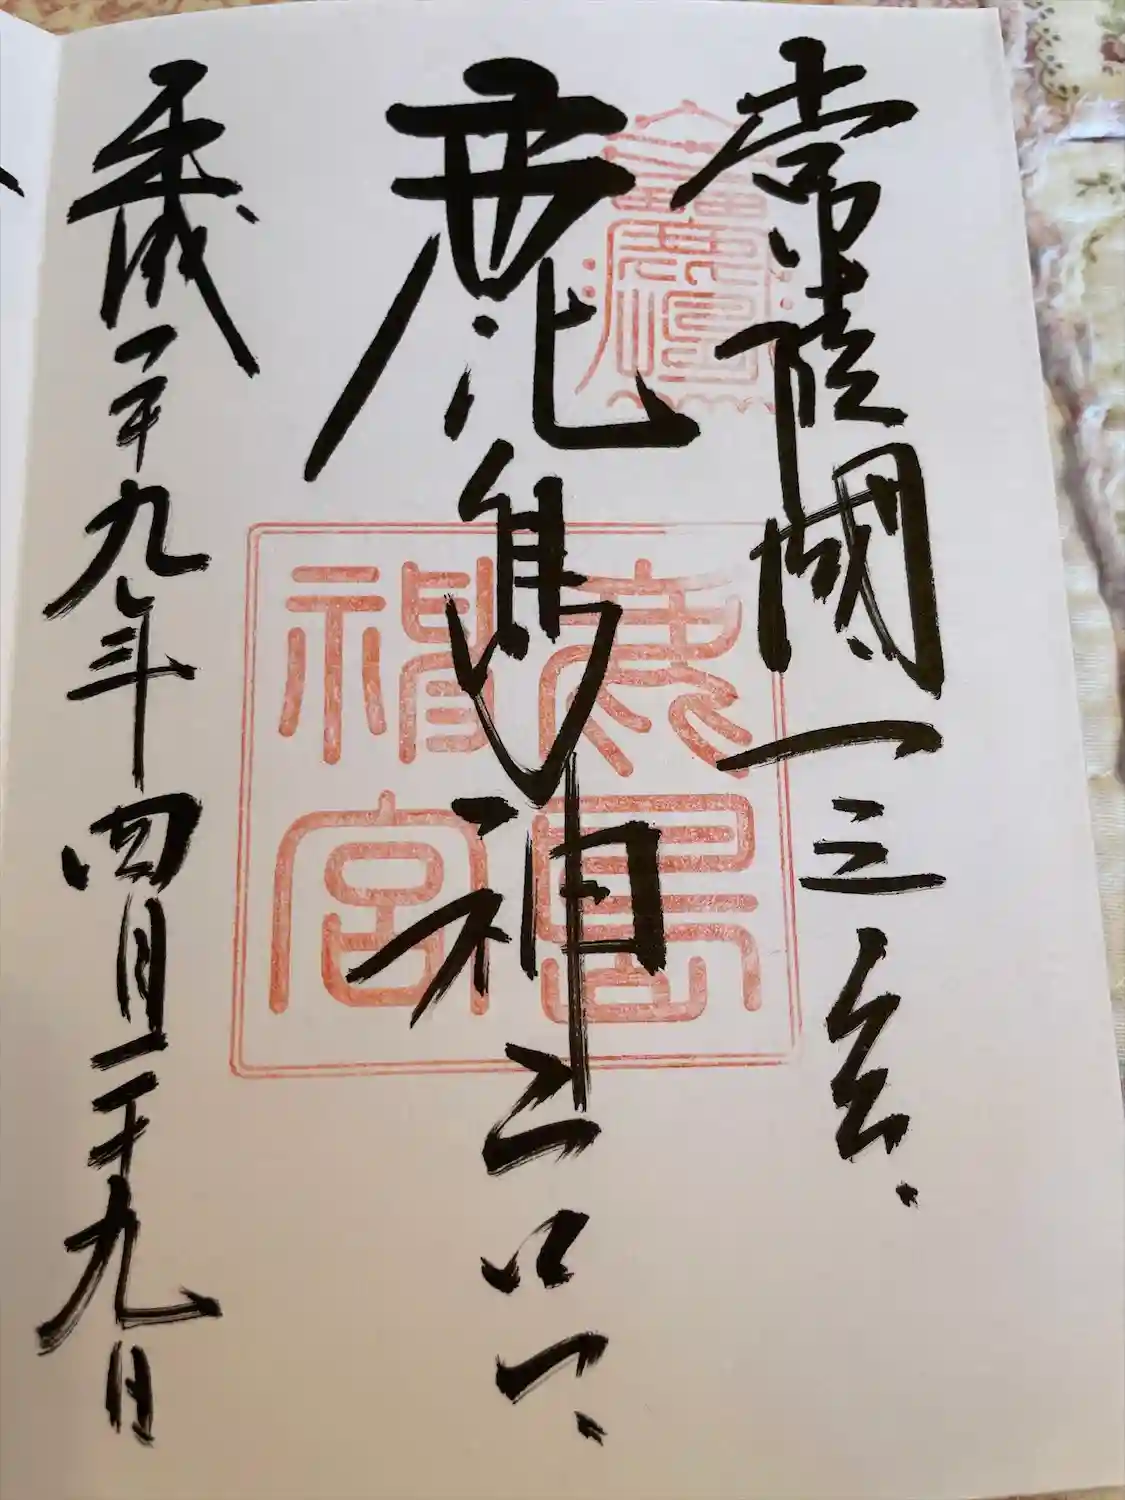 常陸國一三宮
鹿島神宮
平成二十九年四月二十九日
鹿島神宮